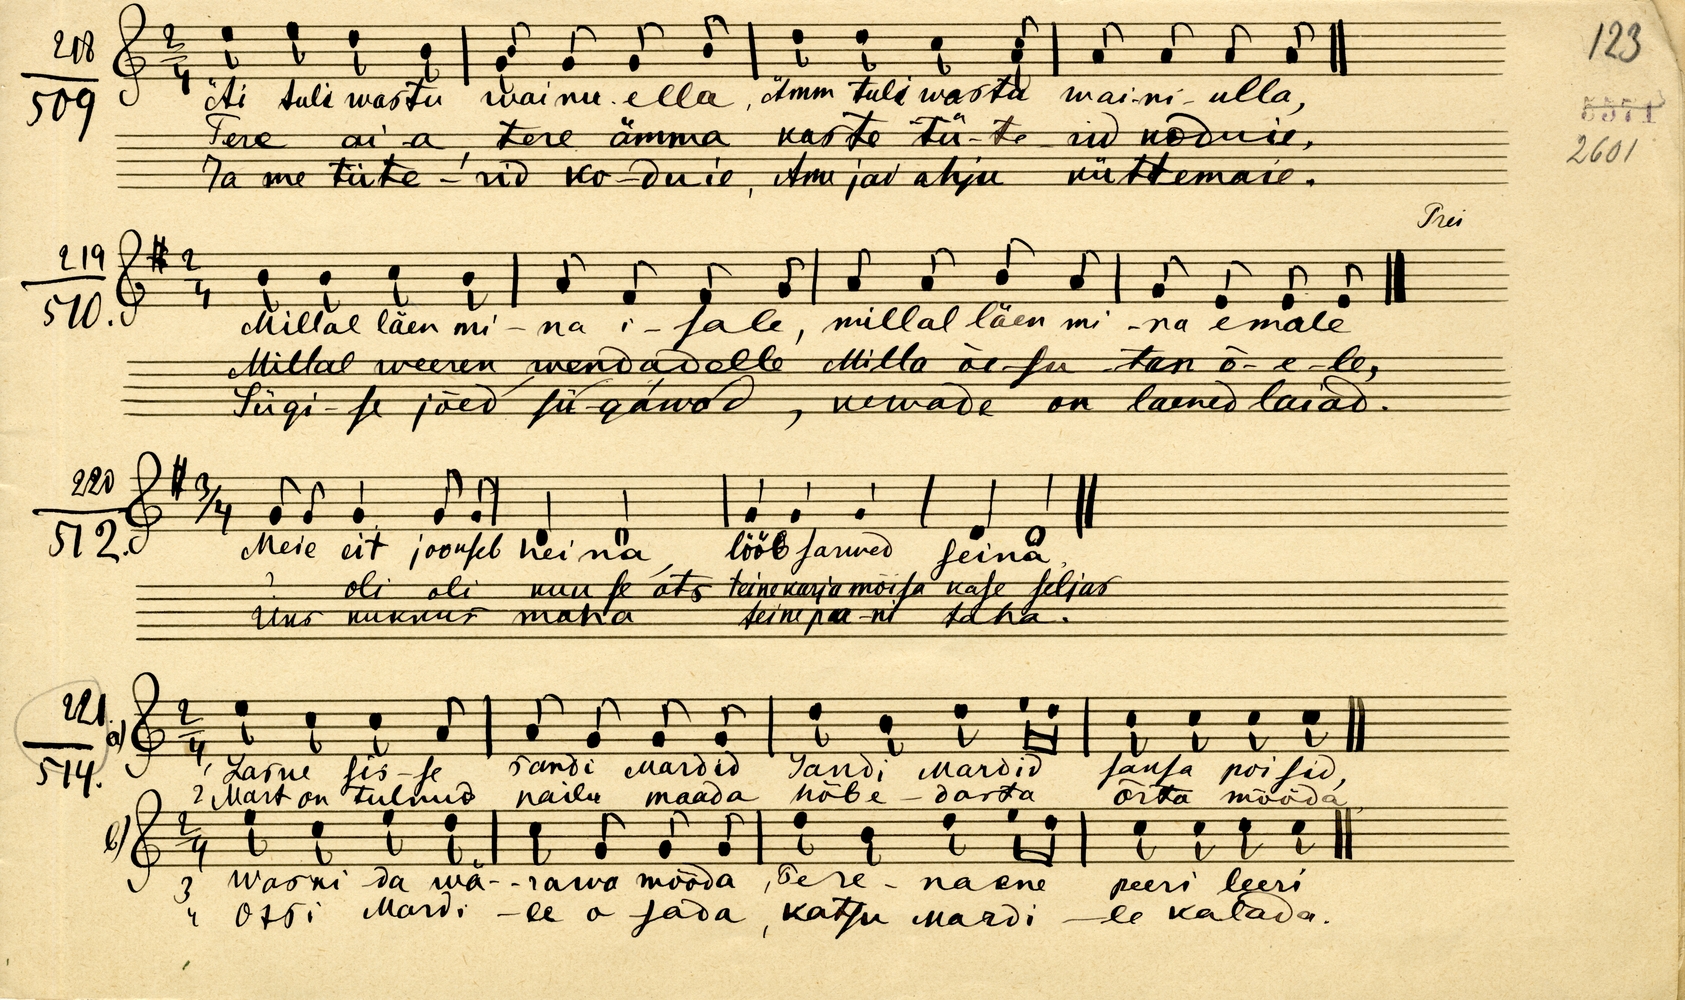 123
5571
2601
218
509
2/4
Äi tuli wastu wainu-ella, Ämm tuli wasta wai-ni-ulla,
Tere äi-a, tere ämma kaste tü-te-rid koduie,
Ja me tüte-rid ko-duie, Amu jäid ahju küttemaie.
Prei
219
510.
2/4
Millal läen mi-na i-sale, millal läen mi-na emale
Millal weeren wendadelle Milla õe-su-tan õ-e-le,
Sügi-se jõed sü-gäwad, kewade on laened laiad.
220
512.
3/4
Meie eit joonseb heina, lööb sarwed seina,
? oli oli kuu se ots teine karja mõisa kase seljas
Üks kukkus maha teine pa-ni taha.
221.
514.
a) 2/4
1 Laske sis-se Sandi Mardid Sandi Mardid sansa poisid,
2 Mart on tulnud nailu maada hõbe-dasta õrta mööda
b) 2/4
3 Waski-da wä-rawa mööda, Pere-naene peeri leeri
4 Otsi Mardi-le o-sada, katsu Mardi-le katada.